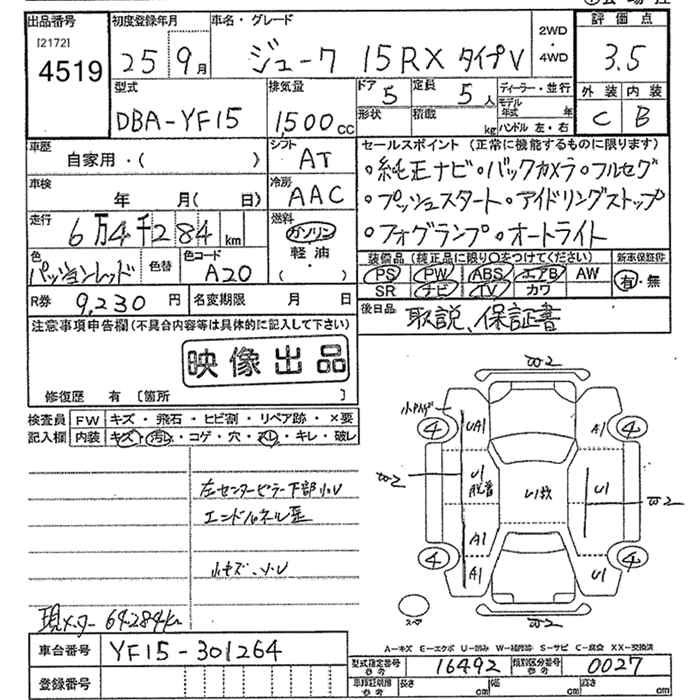 出品番号 初度登録年月 車名・グレード 2WD ・ 4WD 評価点
[2172]
4519 25 9月 ジューク 15RX タイプV 3.5
型式 排気量 ドア 5 定員 5人 ディーラー・並行 外装 内装
DBA-YF15 1,500cc 形状 積載 kg モデル年式 年 C B
ハンドル 左・右
車歴 自家用・( ) シフト AT セールスポイント (正常に機能するものに限ります)
車検 年 月( 日) 冷房 AAC ・純正ナビ・バックカメラ・フルセグ
・プッシュスタート・アイドリングストップ
走行 6万4千284km 燃料 ガソリン ・フォグランプ・オートライト
軽油 ・( )
色 パッションレッド 色替 色コード A20 装備品 (純正品に限り○をつけてください) 新車保証書
PS PW ABS エアB AW 有・無
SR ナビ TV カワ
R券 9,230円 名変期限 月 日 後日品 取説、保証書
注意事項申告欄(不具合内容等は具体的に記入して下さい)
映像出品
修復歴 有 [箇所 ]
検査員 FW キズ・飛石・ヒビ割・リペア跡・×要
記入欄 内装 キズ・汚レ・コゲ・穴・スレ・キレ・破レ
左センターピラー下部小U
エンドパネル歪
小キズ、小U
現メーター 64284km
W2
4 UA1 A1 4
W2 U1 U1数 U1 W2
脱着
A1
4 A1 U1 4
W2
A-キズ E-エクボ U-凹み W-補修跡 S-サビ C-腐食 XX-交換済
車台番号 YF15-301264 型式指定番号 参考 16492 類別区分番号 参考 0027
登録番号 長さ cm 幅 cm 高さ cm